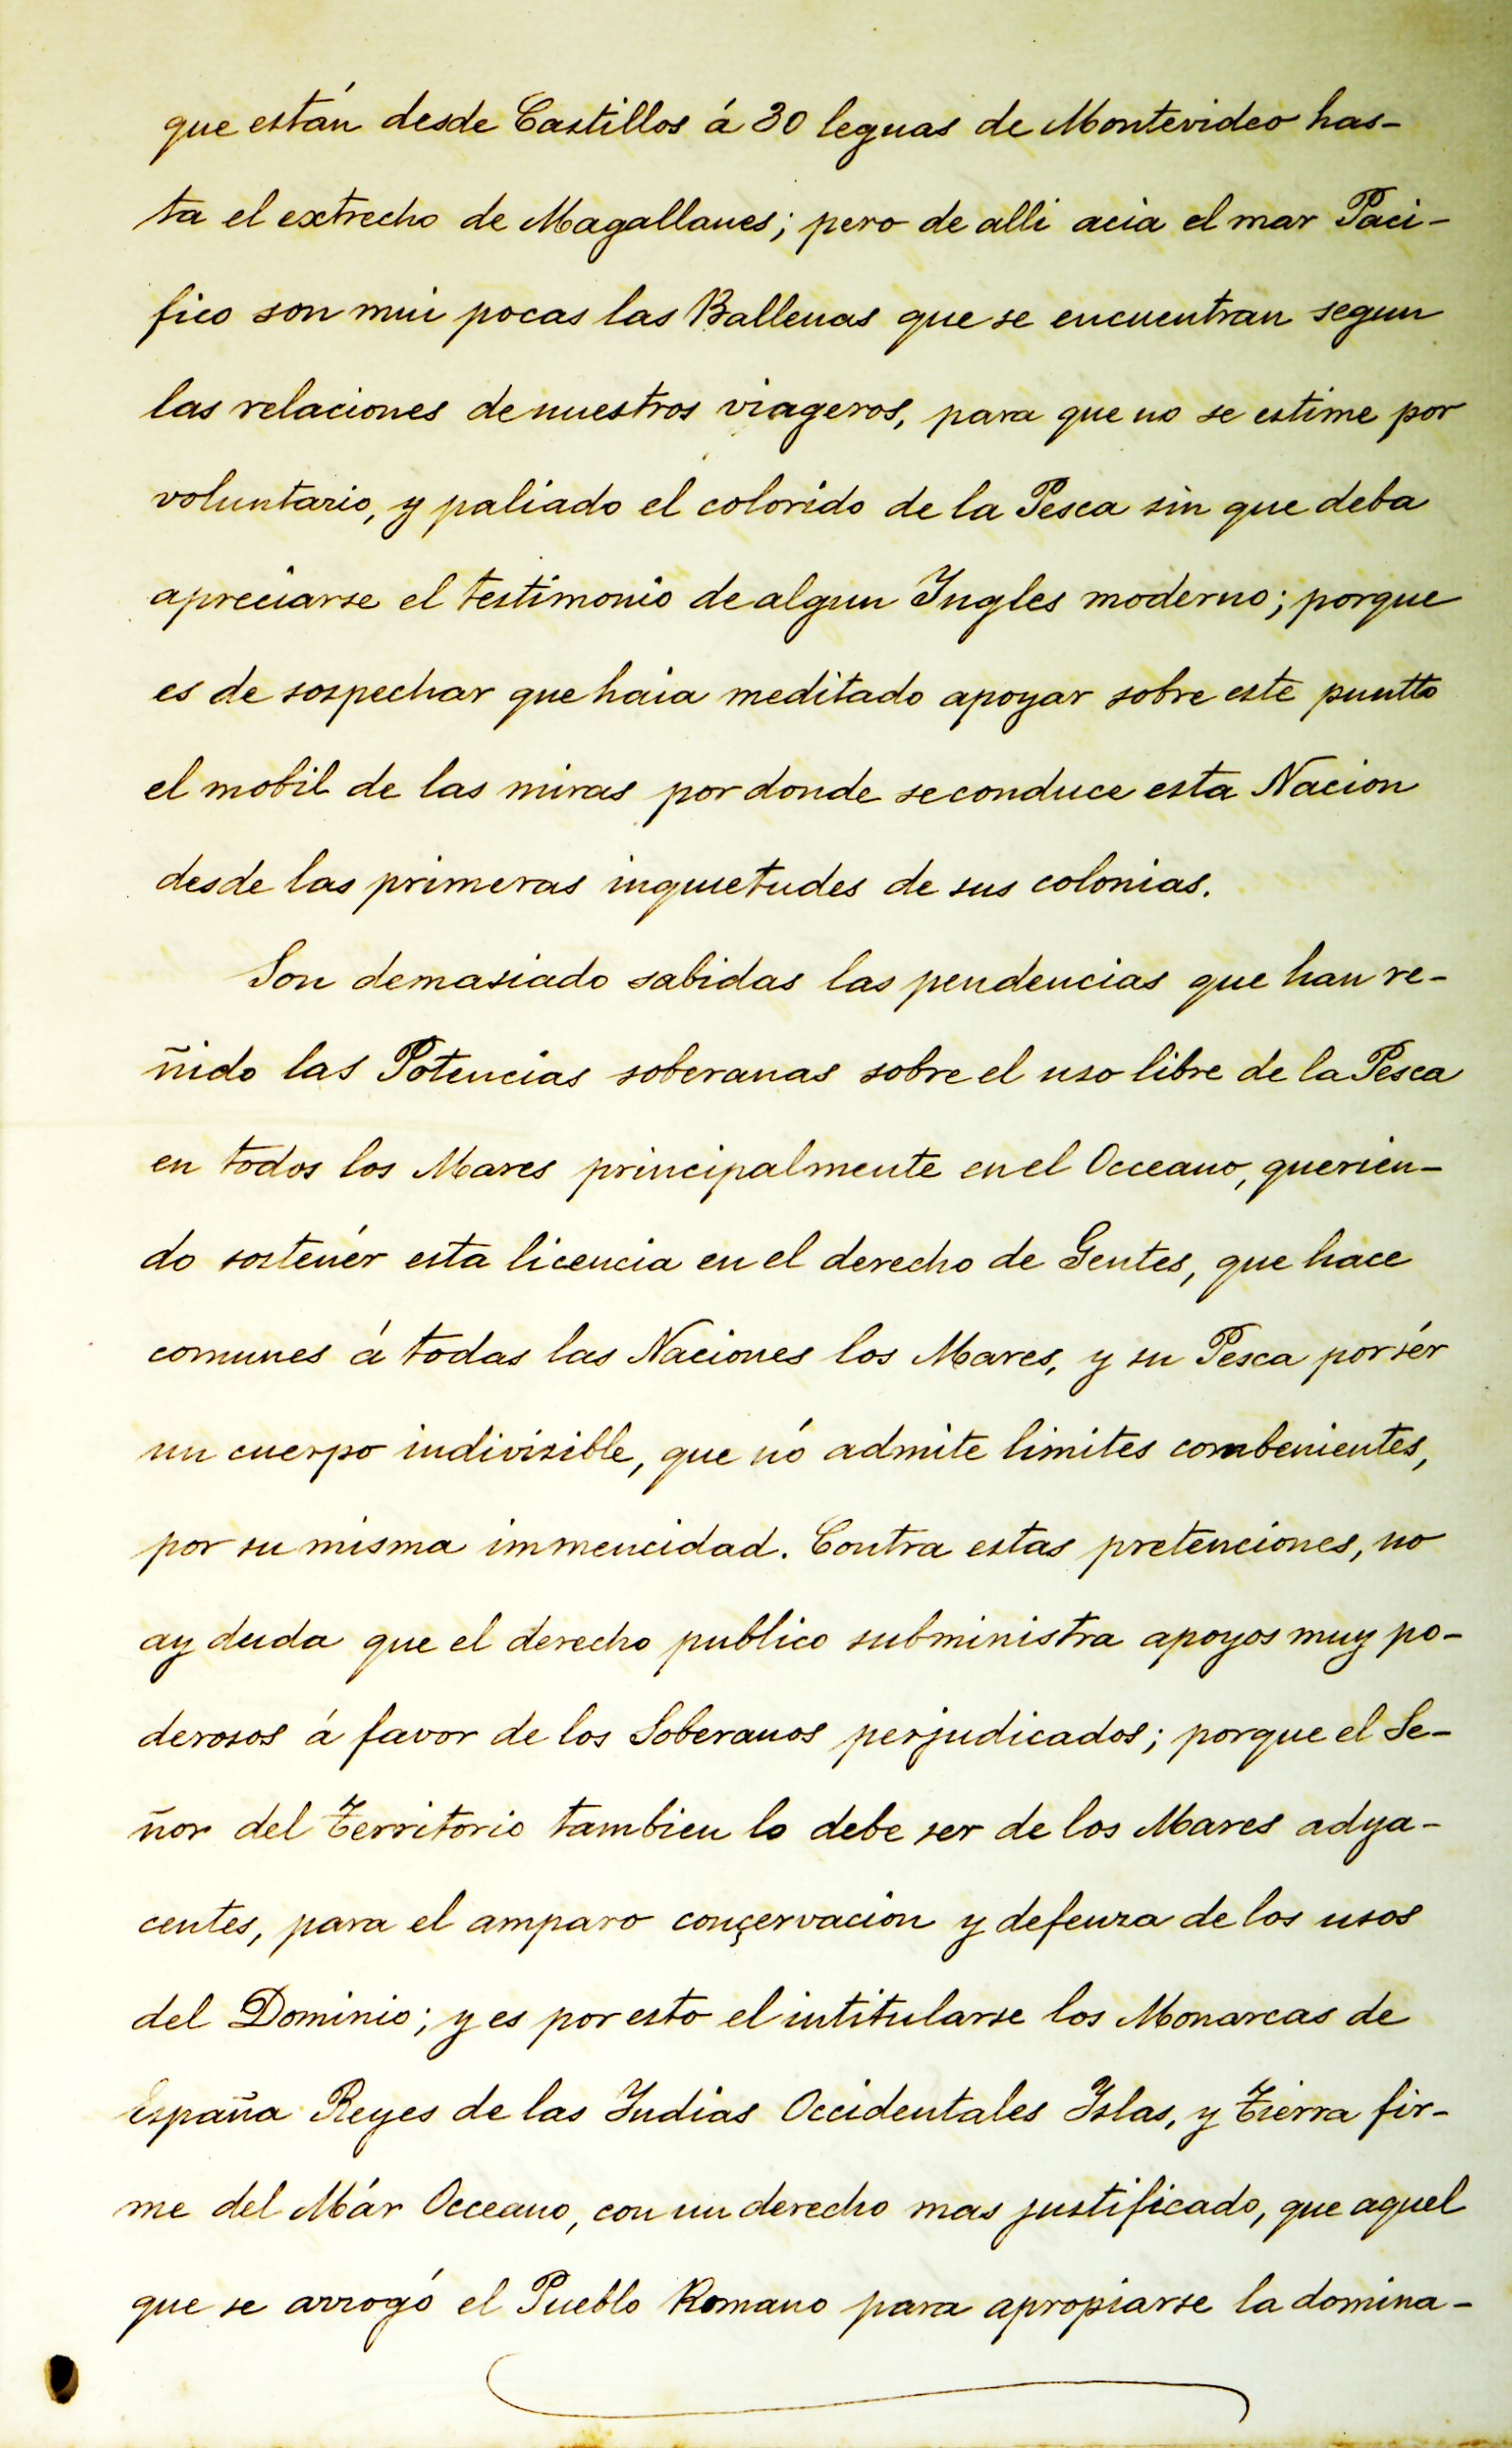 que están desde Castillos á 30 leguas de Montevideo has-
ta el extrecho de Magallanes; pero de alli acia el mar Paci-
fico son mui pocas las Ballenas que se encuentran segun
las relaciones de nuestros viageros, para que no se estime por
voluntario, y paliado el colorido de la Pesca sin que deba
apreciarse el testimonio de algun Yngles moderno; porque
es de sospechar que haia meditado apoyar sobre este puntto
el mobil de las miras por donde se conduce esta Nacion
desde las primeras inquietudes de sus colonias.
Son demasiado sabidas las pendencias que han re-
ñido las Potencias soberanas sobre el uso libre de la Pesca
en todos los Mares principalmente en el Occeano, querien-
do sostenér esta licencia en el derecho de Gentes, que hace
comunes á todas las Naciones los Mares, y su Pesca por sér
un cuerpo indivisible, que nó admite limites combenientes,
por su misma immencidad. Contra estas pretenciones, no
ay duda que el derecho publico subministra apoyos muy po-
derosos á favor de los Soberanos perjudicados; porque el Se-
ñor del Territorio tambien lo debe ser de los Mares adya-
centes, para el amparo conçervacion y defensa de los usos
del Dominio; y es por esto el intitularse los Monarcas de
España Reyes de las Yndias Occidentales Yslas, y Tierra fir-
me del Már Occeano, con un derecho mas justificado, que aquel
que se arrogó el Pueblo Romano para apropiarse la domina-